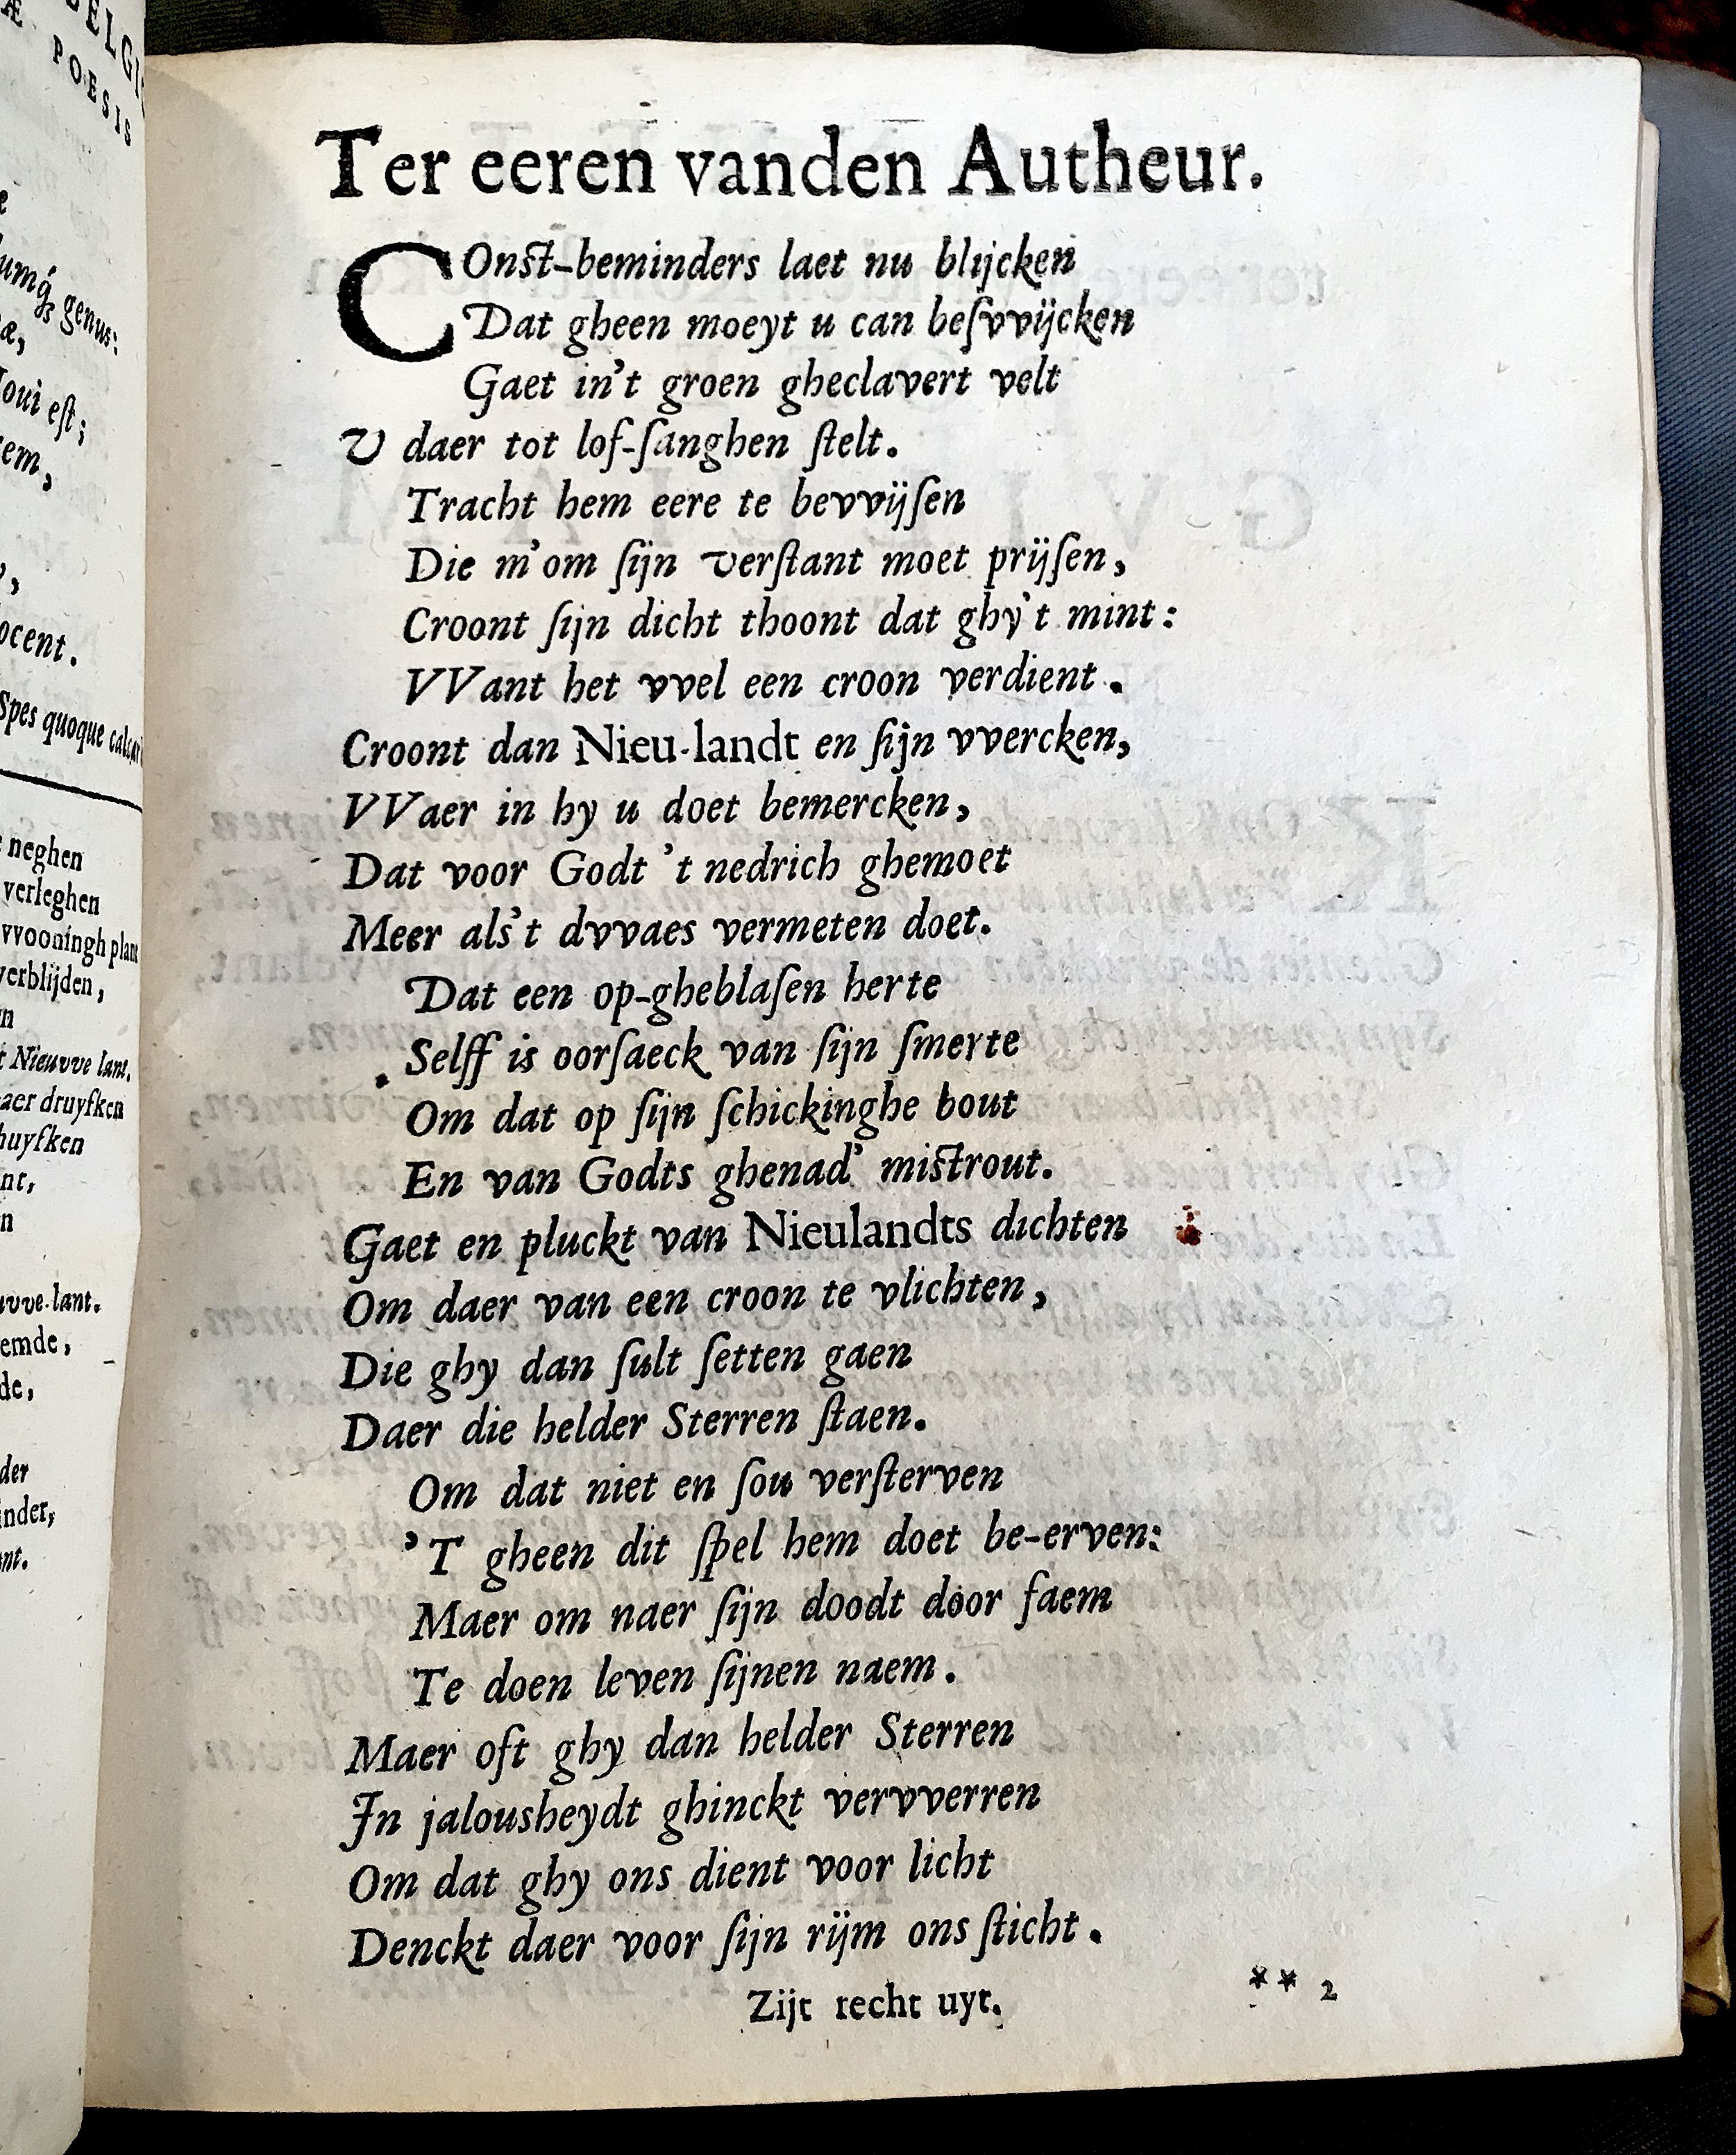 ELGI
Æ POESIS
e
umq́ꝫ genus:
æ,
Ioui eſt;
em,
ocent.
Spes quoque calcar
neghen
verleghen
vvooningh plant
verblijden,
n
t Nieuvve lant.
aer druyfken
huyfken
nt,
n
uvve-lant.
emde,
de,
der
inder,
ant.
Ter eeren vanden Autheur.
COnſt-beminders laet nu blijcken
Dat gheen moeyt u can beſvvijcken
Gaet in't groen gheclavert velt
V daer tot lof-ſanghen ſtelt.
Tracht hem eere te bevvijſen
Die m'om ſijn verſtant moet prijſen,
Croont ſijn dicht thoont dat ghy't mint:
VVant het vvel een croon verdient.
Croont dan Nieu-landt en ſijn vvercken,
VVaer in hy u doet bemercken,
Dat voor Godt 't nedrich ghemoet
Meer als't dvvaes vermeten doet.
Dat een op-gheblaſen herte
Selff is oorſaeck van ſijn ſmerte
Om dat op ſijn ſchickinghe bout
En van Godts ghenad' miſtrout.
Gaet en pluckt van Nieulandts dichten
Om daer van een croon te vlichten,
Die ghy dan ſult ſetten gaen
Daer die helder Sterren ſtaen.
Om dat niet en ſou verſterven
'T gheen dit ſpel hem doet be-erven:
Maer om naer ſijn doodt door faem
Te doen leven ſijnen naem.
Maer oft ghy dan helder Sterren
In jalousheydt ghinckt vervverren
Om dat ghy ons dient voor licht
Denckt daer voor ſijn rijm ons ſticht.
Zijt recht uyt.
** 2